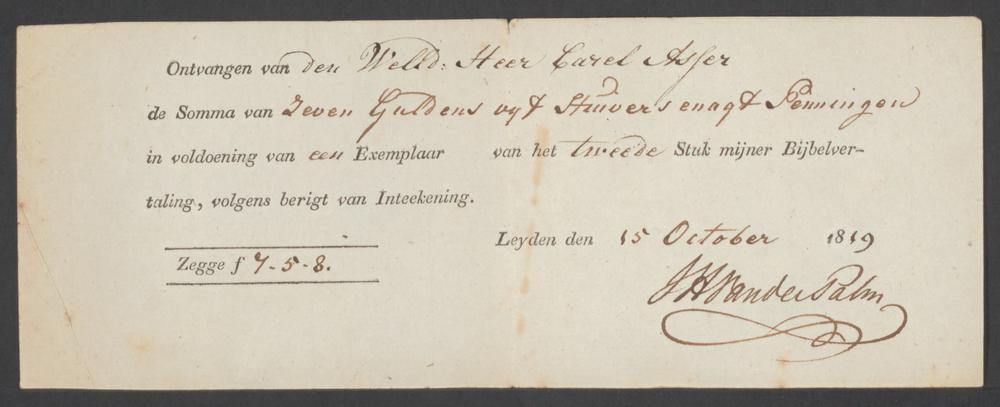 Ontvangen van den Welld: Heer Carel Asser
de Somma van Zeven Guldens vyf Stuivers en agt Penningen
in voldoening van een Exemplaar van het tweede Stuk mijner Bijbelver-
taling, volgens berigt van Inteekening.
Leyden den 15 October 1819
Zegge f 7-5-8.
JH van der Palm